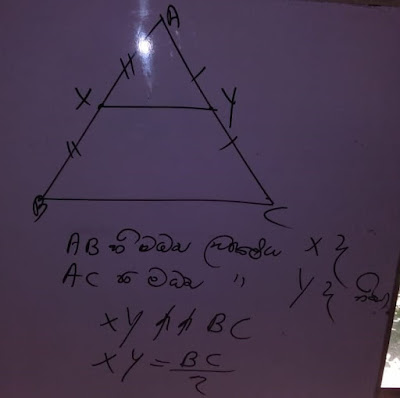 A
X Y
B C
AB හි මධ්‍ය ලක්ෂ්‍යය X }
AC හි මධ්‍ය " Y }
XY // BC
XY = BC/2